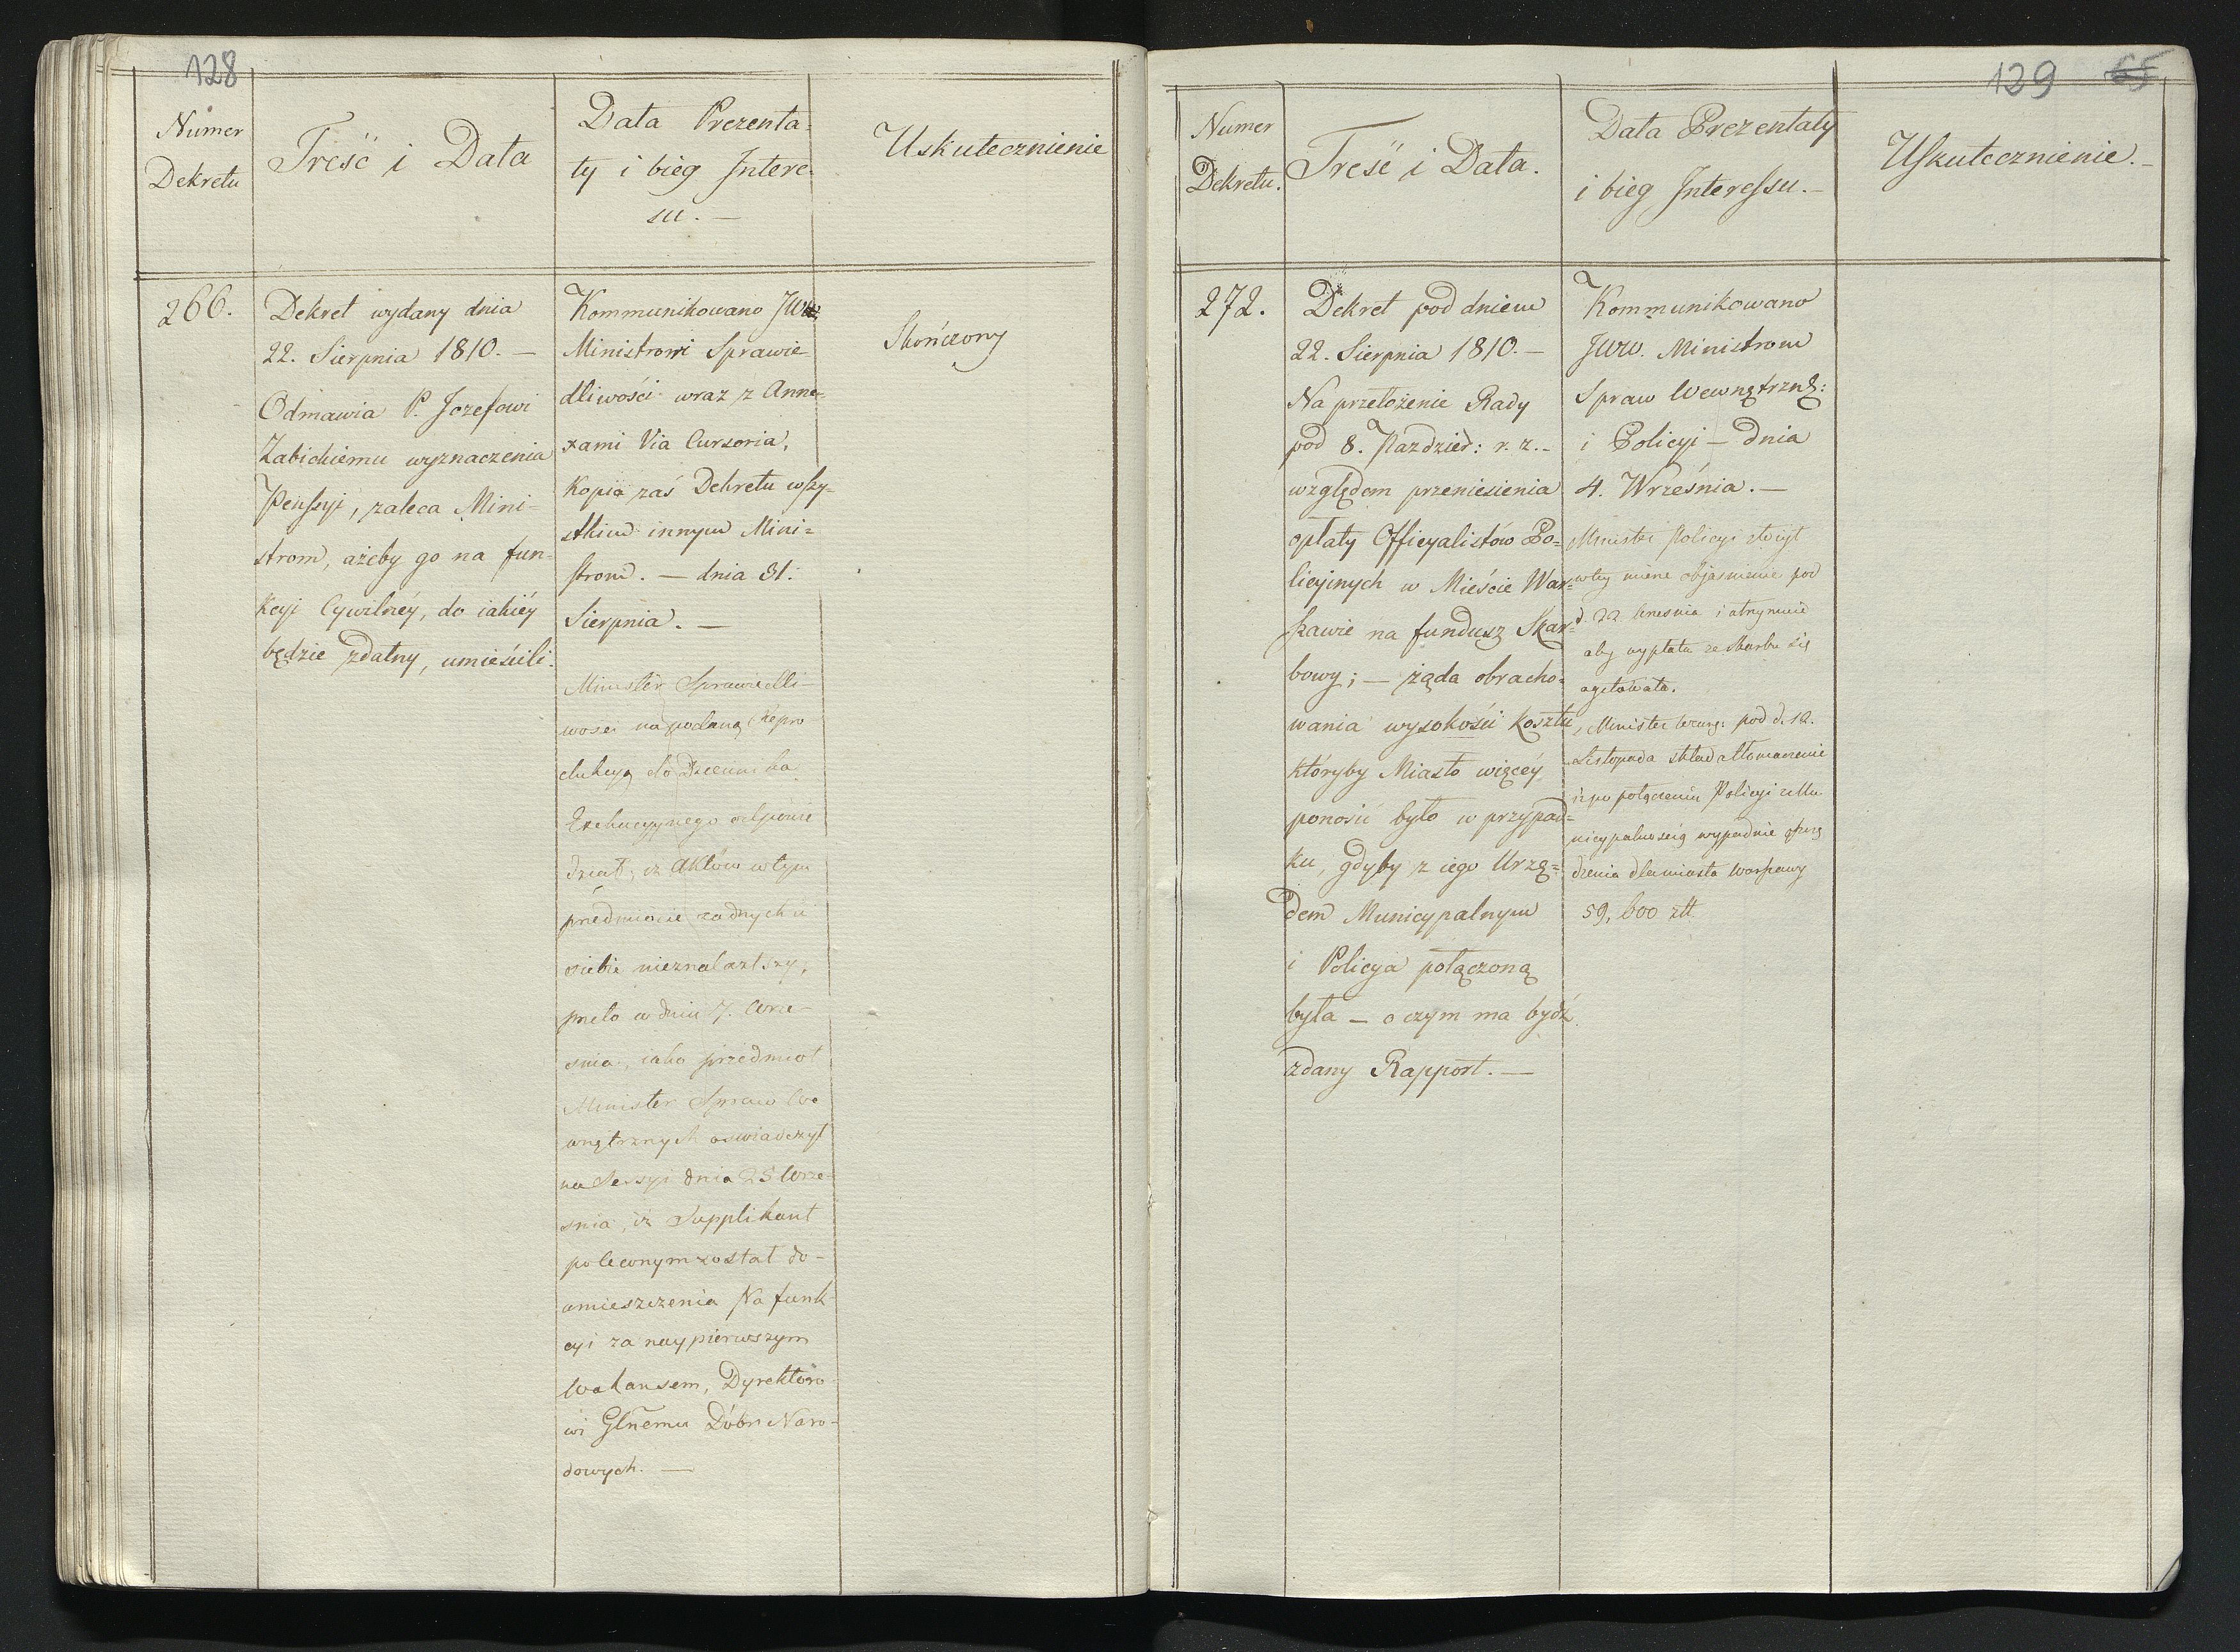 128
Numer
Dekretu
Treść i Data
Data Prezenta-
ty i bieg Intere-
su. —
Uskutecznienie
266.
Dekret wydany dnia
22. Sierpnia 1810. —
Odmawia P. Jozefowi
Zabickiemu wyznaczenia
Pensyi, zaleca Mini-
strom, ażeby go na fun-
kcyi Cywilnéy, do iakiéy
będzie zdatny, umieścili.
Kommunikowano JW
Ministrowi Sprawie-
dliwości wraz z Anne-
xami Via Cursoria,
Kopia zaś Dekretu wszy-
stkim innym Mini=
strom. — dnia 31.
Sierpnia. —
Minister Sprawiedli-
wosci na podaną Repro
dukcyą do Dziennika
Exekucyjnego odpowie
dział, iż Aktów w tym
przedmiocie żadnych u
siebie nieznalazłszy,
przeto w dniu 7. Wrze-
snia, iako przedmiot
Minister Spraw We
wnętrznych oswiadczył
na Sessyi dnia 25 Wrze-
snia, iż Supplikant
poleconym został do-
umieszczenia Na funk-
cyi za naypierwszym
Wakansem, Dyrektoro-
wi Glnemu Dóbr Naro-
dowych. —
Skończony
129 65
Numer
Dekretu.
Treść i Data.
Data Prezentaty
i bieg Interessu. —
Uskutecznienie. —
272.
Dekret pod dniem
22. Sierpnia 1810. —
Na przełożenie Rady
pod 8. Pazdzier: r. z. -
względem przeniesienia
opłaty Officyalistów Po=
licyinych w Mieście War=
szawie na fundusz Skar=
bowy; — żąda obracho=
wania wysokości kosztu
któryby Miasto więcéy
ponosić było w przypad=
ku, gdyby z iego Urzę=
dem Municypalnym
i Policya połączoną
była — o czym ma bydź
zdany Rapport. —
Kommunikowano
JWW. Ministrom
Spraw Wewnętrzn:
i Policyi — dnia
4. Września. —
Minister Policyi złożył
w tey mierze objasnienie pod
d. 22 Wresnia i
aby wypłata ze Skarbu się
Minister Wewnę: pod d. 12.
Listopada składa tłomaczenie
iż po połączeniu Policyi z Mu
nicypalnoscią wypadnie
dzenia dla miasta Warszawy
59,600 złt.